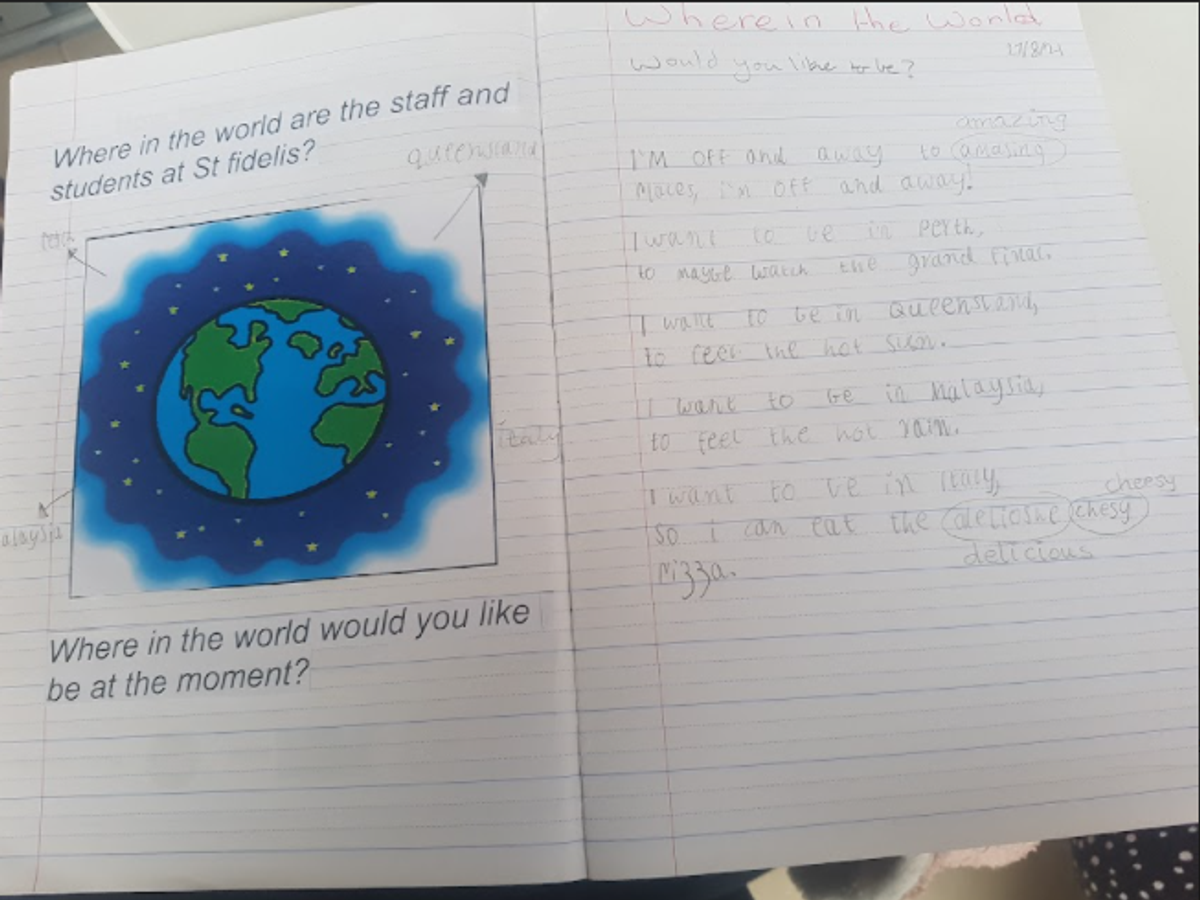 Where in the world are the staff and
students at St fidelis?
queensland
italy
Where in the world would you like
be at the moment?
Where in the World
would you like to be?
amazing
I'M OFF and away to amasing
Places, i'm off and away!
I want to be in Perth,
to maybe watch the grand Final.
I want to be in Queensland,
to feel the hot sun.
I want to be in Malaysia,
to feel the hot rain.
I want to be in Italy,
cheesy
so i can eat the chesy
delicious
Pizza.